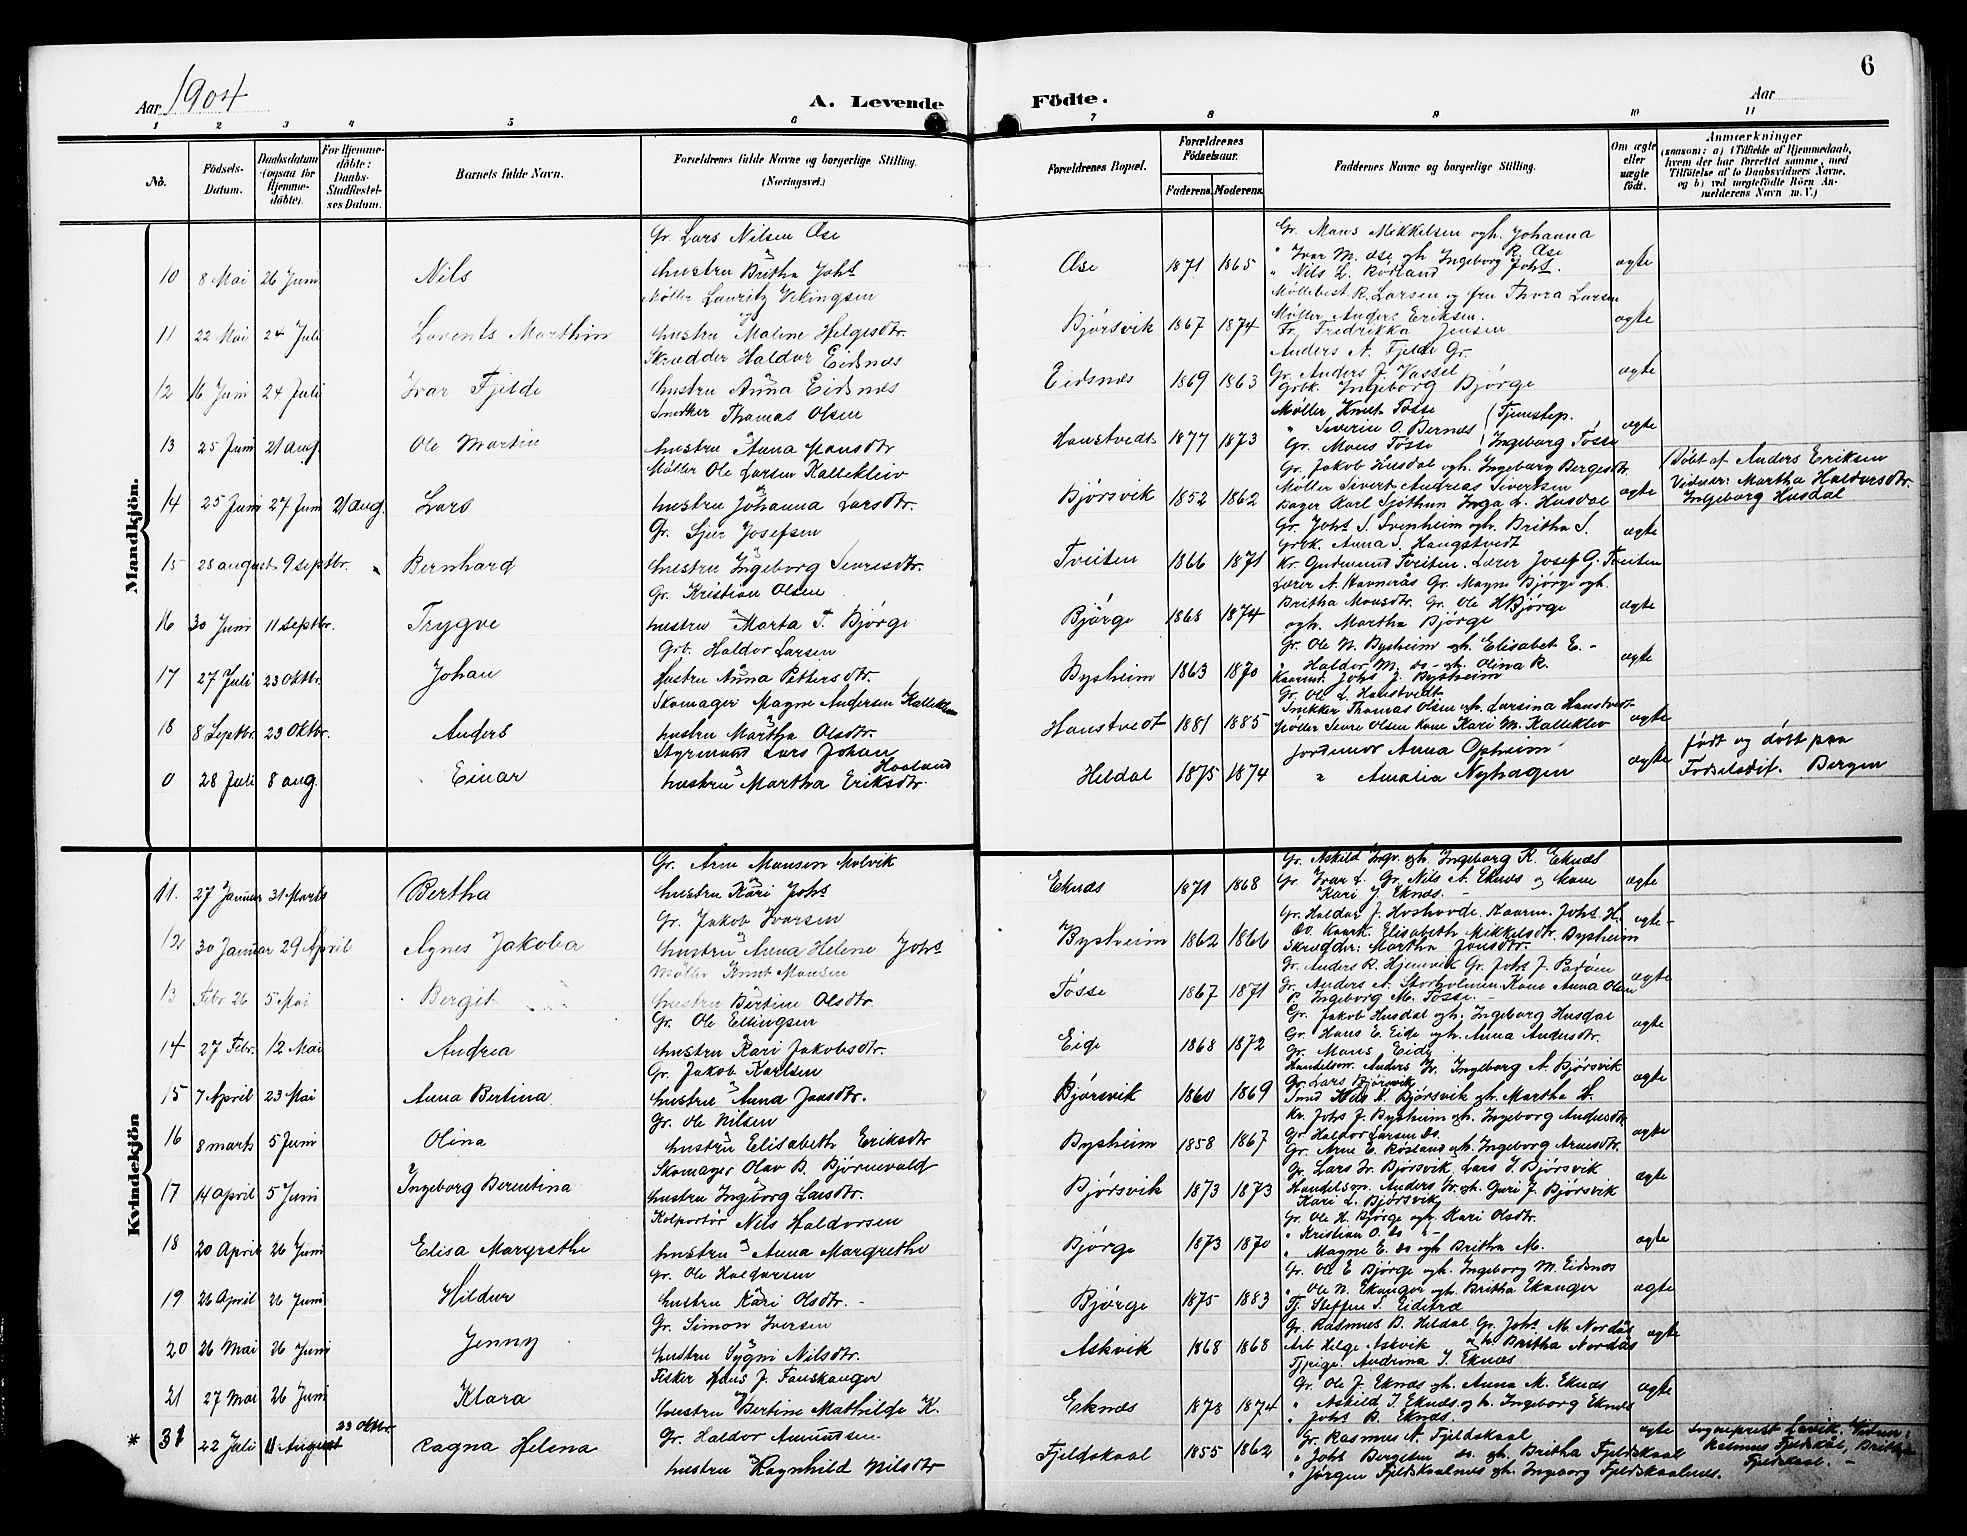 Aar 1904
A. Levende Födte.
Aar
6
1 2 3 4 5 6 7 8 9 10 11
No.
Födsels-Datum.
Daabsdatum (ogsaa for Hjemmedöbte).
For Hjemmedöbte: Daabs-Stadfæstelses Datum.
Barnets fulde Navn.
Forældrenes fulde Navne og borgerlige Stilling. (Næringsvei.)
Forældrenes Bopæl.
Forældrenes Födselsaar.
Faderens. Moderens.
Faddernes Navne og borgerlige Stilling.
Om ægte eller uægte födt.
Anmærkninger
(saasom: a) i Tilfælde af Hjemmedaab, hvem der har forrettet samme, med Tilföielse af to Daabsvidners Navne, og b) ved uægtefödte Börn Anmelderens Navn m. V.)
Mandkjön.
Gr. Lars Nilsen Øse Gr. Mons Mikkelsen og h. Johanna
10 8 Mai 26 Juni Nils hustru Britha Johs Øse 1871 1865 " Ivar M. Øse og h Ingeborg R. Øse ægte
" Nils L. Rödland Johs.
Møller Lauritz Vikingsen Møllebest. R. Larsen og fru Thora Larsen
11 22 Mai 24 Juli Lavents Marthin hustru Maline Helgesdtr. Bjørsvik 1867 1874 Møller Anders Eriksen. ægte
Fr. Fredrikka Jensen
Skrædder Haldor Eidsnæs Anders A. Fjelde Gr.
12 16 Juni 24 Juli Ivar Fjelde hustru Anna Eidsnæs Eidsnæs 1869 1863 Gr. Anders J. Vassel ægte
Grbk. Ingeborg Bjørge
Snedker Thomas Olsen Møller Knut Tösse (Tjenestep.
13 25 Juni 21 Aug. Ole Martin hustru Anna Monsdtr Hanstvedt 1877 1873 " Severin O. Bernæs Ingeborg Tösse ægte
Gr. Mons Tösse
Møller Ole Larsen Kallekleiv Gr. Jakob Husdal og h. Ingeborg Bergesdtr Döbt af Anders Eriksen
14 25 Juni 27 Juni 21 aug. Lars hustru Johanna Larsdtr. Bjørsvik 1852 1862 Møller Sivert Andreas Sivertsen ægte Vidner: Martha Haldorsdtr.
Bager Karl Sjöthun Inga L. Husdal Ingeborg Husdal
Gr. Sjur Josefsen Gr. Johs S. Svenheim og h. Britha S.
15 28 august 9 septbr. Bernhard hustru Ingeborg Sevresdtr. Tveiten 1866 1871 Grbk. Anna S. Haugstvedt ægte
Kr. Gudmund Tveiten. Lærer Josef G. Tveiten
Gr. Kristian Olsen Lærer A. Havnerås Gr. Magne Bjørge og h.
16 30 Juni 11 septbr. Trygve hustru Marta T. Bjørge Bjørge 1868 1874 Britha Monsdtr. Gr. Ole H Bjørge ægte
og h. Martha Bjørge
Grb. Haldor Larsen Gr. Ole N. Bysheim og h. Elisabet E. -
17 27 Juli 23 Oktbr. Johan Hustru Anna Pettersdtr. Bysheim 1863 1870 " Haldor M. do - og h. Olina R. ægte
Kaarm. Johs J. Bysheim
Skomager Magne Andersen Kalleklev Gr. Ole L. Hanstvedt
18 8 Septbr. 23 Oktbr. Anders hustru Martha Olsdtr. Hanstvedt 1881 1885 Snekker Thomas Olsen og h. Larsina Hanstvedt ægte
Møller Sevre Olsen Kone Kari M. Kalleklev
Styrmand Lars Johan Haaland Jordemor Anna Opheim født og döbt paa
0 28 Juli 8 aug. Einar hustru Martha Eriksdtr. Hildal 1875 1874 " Amalia Nyhagen ægte Fødselsstif. Bergen
Kvindekjön
Gr. Arne Monsen Molvik Gr. Askild Ingv. og h. Ingeborg K. Eknæs
11. 27 Januar 31 Marts Bertha hustru Kari Johs Eknæs 1871 1868 Gr. Ivar L. Gr. Nils A. Eknæs og Kone ægte
Kari J. Eknæs. -
Gr. Jakob Ivarsen Gr. Haldor J. Hoshovde. Kaarm. Johs H.
12 30 Januar 29 April Agnes Jakoba hustru Anna Helene Johs Bysheim 1862 1866 Kaark. Elisabeth Mikkelsdtr. Bysheim ægte-
Skrædder: Martha Jonsdtr.
Møller Knut Monsen Gr. Anders R. Hjemvik Gr. Johs J. Padøen
13 Febr 26 5 Mai Bergit hustru Bertine Olsdtr. Tösse 1867 1871 Gr. Anders A. Storholmen Kone Anna Olsen ægte
P. Ingeborg M. Tösse. -
Gr. Ole Ellingsen Gr. Jakob Husdal og h. Ingeborg Husdal
14 27 Febr. 12 Mai Andrea hustru Kari Jakobsdtr. Eide 1868 1872 Gr. Hans E. Eide og h. Anna Andersdtr. ægte
Gr. Mons Eide
Gr. Jakob Karlsen Handelsm. Anders Iv. Ingeborg A. Bjørsvik
15 7 April 23 Mai Anna Bertina hustru Anna Jonsdtr. Bjørsvik 1860 1869 Gr. Lars Bjørsvik ægte
Smed Nils K. Bjørsvik og h. Martha L.
Gr. Ole Nilsen Kr. Johs J. Bysheim og h. Ingeborg Andersdtr.
16 8 marts 5 Juni Olina hustru Elisabeth Eriksdtr Bysheim 1858 1867 Gr. Haldor Larsen Do. ægte
Gr. Arne E. Røsland og h. Ingeborg Arnesdtr.
Skomager Olav B. Bjørnevald Gr. Lars Iv. Bjørsvik, Lars I. Bjørsvik
17 14 April 5 Juni Ingeborg Berentina hustru Ingeborg Larsdtr. Bjørsvik 1873 1873 Handelsm. Anders Iv. og h. Guri J. Bjørsvik ægte
Kari L. Bjørsvik
Kolportør Nils Haldorsen Gr. Ole H. Bjørge og h. Kari Olsdtr.
18 20 April 26 Juni Elisa Margrethe hustru Anna Margrethe Bjørge 1873 1870 " Kristian O. do " - ægte
" Magne E. do og h Britha M.
Gr. Ole Haldorsen Gr. Ole E Bjørge og h. Ingeborg M. Eidsnæs
19 26 April 26 Juni Hildur hustru Kari Olsdtr. - Bjørge 1875 1883 " Ole N. Ekanger og h. Britha Ekanger ægte
Tj. Steffen S. Eidetræ
Gr. Simon Iversen Gr. Rasmus B. Hildal. Gr. Johs M. Nordås
20 26 Mai 26 Juni Jenny hustru Sygni Nilsdtr. Askvik 1868 1868 Arb Helge Askvik og h. Britha Nordås ægte
Tjpige. Andrina I. Eknæs
Fisker Hans J. Fanskanger Gr. Ole J. Eknæs og h. Anna M. Eknæs
21 27 Mai 26 Juni Klara hustru Bertine Mathilde K. Eknæs 1878 1874 " Askild I. Eknæs og h. Ingeborg Eknæs ægte
" Johs B. Eknæs.
Gr. Haldor Amundsen Gr. Rasmus A. Fjeldskaal Sogneprest Lavik. Vidner:
* 31 22 Juli 11 August 23 Oktbr. Ragna Helena hustru Ragnhild Nilsdtr Fjeldskaal 1855 1862 " Johs Bergesen do. og h. Britha Fjeldskaal ægte Rasmus Fjeldskål, Britha
" Jørgen Fjeldskaalnes og h. Ingeborg Fjeldskaalnes. Fjeldskaal. -